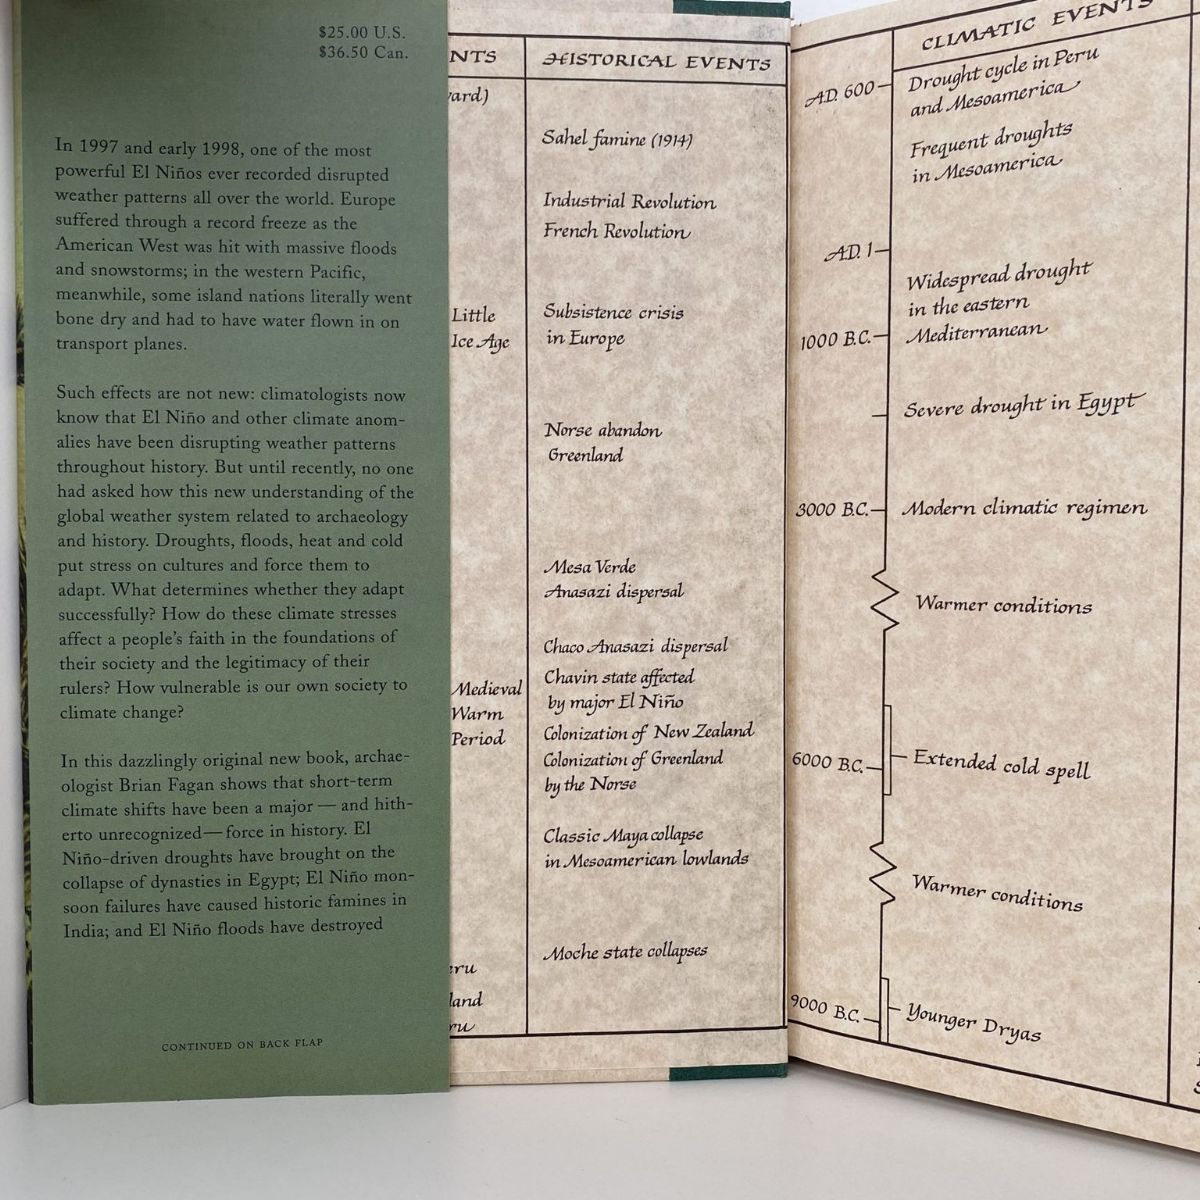 $25.00 U.S.
$36.50 Can.
In 1997 and early 1998, one of the most
powerful El Niños ever recorded disrupted
weather patterns all over the world. Europe
suffered through a record freeze as the
American West was hit with massive floods
and snowstorms; in the western Pacific,
meanwhile, some island nations literally went
bone dry and had to have water flown in on
transport planes.
Such effects are not new: climatologists now
know that El Niño and other climate anom-
alies have been disrupting weather patterns
throughout history. But until recently, no one
had asked how this new understanding of the
global weather system related to archaeology
and history. Droughts, floods, heat and cold
put stress on cultures and force them to
adapt. What determines whether they adapt
successfully? How do these climate stresses
affect a people's faith in the foundations of
their society and the legitimacy of their
rulers? How vulnerable is our own society to
climate change?
In this dazzlingly original new book, archae-
ologist Brian Fagan shows that short-term
climate shifts have been a major — and hith-
erto unrecognized — force in history. El
Niño-driven droughts have brought on the
collapse of dynasties in Egypt; El Niño mon-
soon failures have caused historic famines in
India; and El Niño floods have destroyed
CONTINUED ON BACK FLAP
NTS
ard)
Little
Ice Age
Medieval
Warm
Period
eru
land
ru
HISTORICAL EVENTS
Sahel famine (1914)
Industrial Revolution
French Revolution
Subsistence crisis
in Europe
Norse abandon
Greenland
Mesa Verde
Anasazi dispersal
Chaco Anasazi dispersal
Chavin state affected
by major El Niño
Colonization of New Zealand
Colonization of Greenland
by the Norse
Classic Maya collapse
in Mesoamerican lowlands
Moche state collapses
CLIMATIC EVENTS
A.D. 600
Drought cycle in Peru
and Mesoamerica
Frequent droughts
in Mesoamerica
A.D. 1
Widespread drought
in the eastern
Mediterranean
1000 B.C.
Severe drought in Egypt
3000 B.C.
Modern climatic regimen
Warmer conditions
6000 B.C.
Extended cold spell
Warmer conditions
9000 B.C.
Younger Dryas